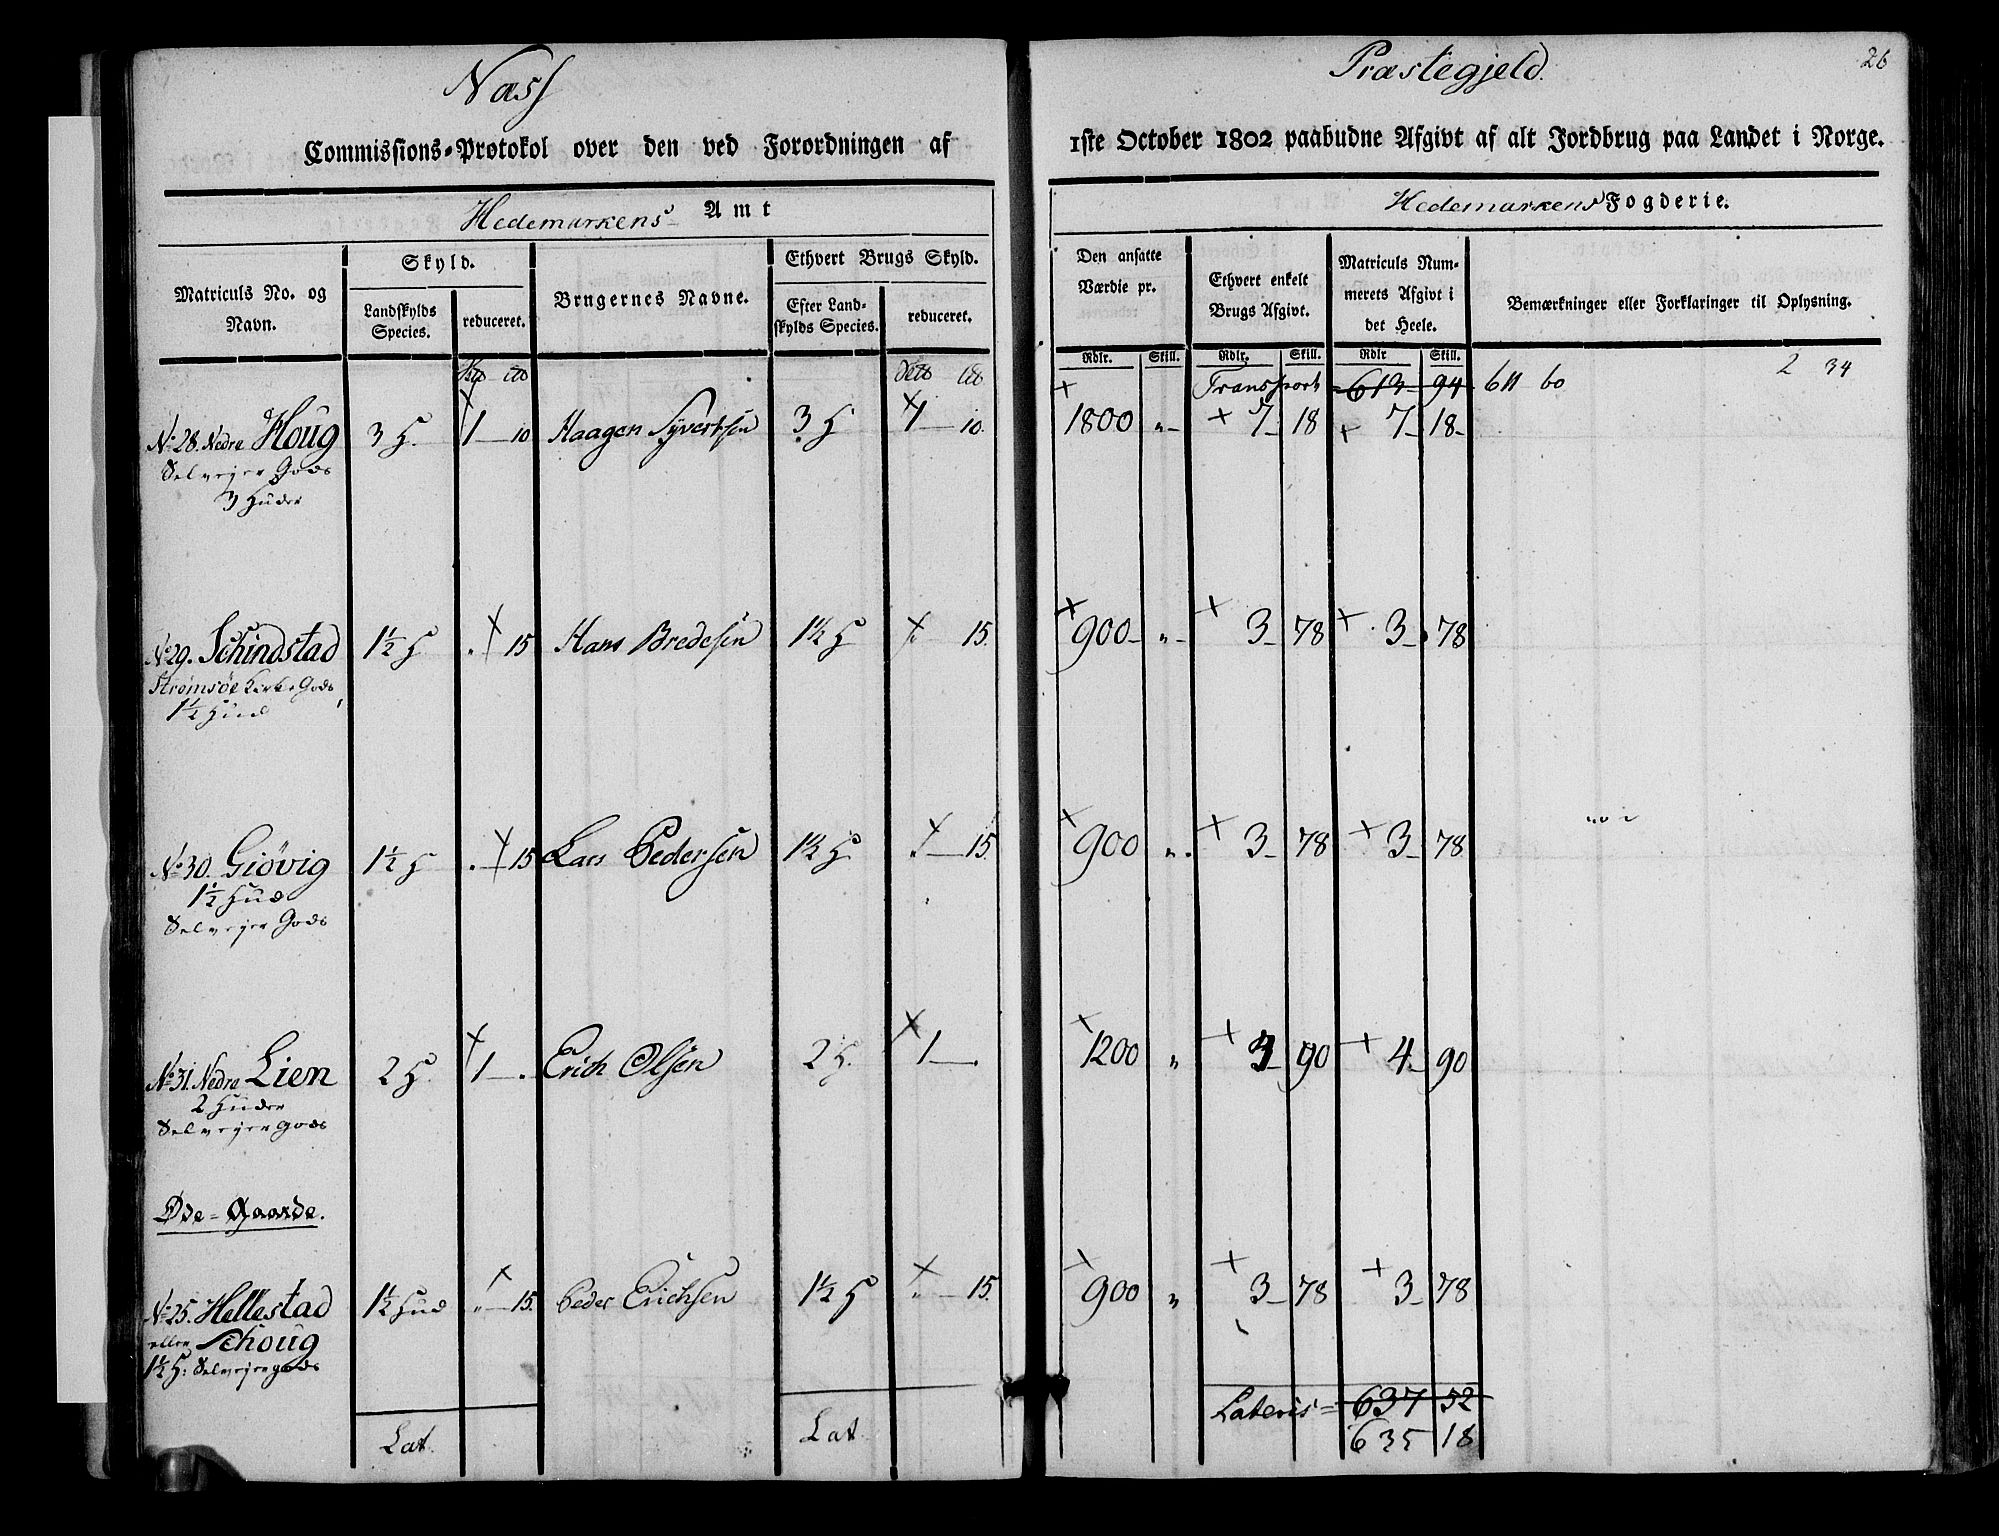 Næss Præstegjeld. 26
Commissions-Protokol over den ved Forordningen af 1ste October 1802 paabudne Afgivt af alt Jordbrug paa Landet i Norge.
Hedemarkens Amt Hedemarkens Fogderie.
Matriculs No. og Navn.
Skyld.
Landskylds Species.
reduceret.
Brugernes Navne.
Ethvert Brugs Skyld.
Efter Landskylds Species.
reduceret.
Den ansatte Værdie pr.
Ethvert enkelt Brugs Afgivt.
Matriculs Nummerets Afgivt i det Heele.
Bemærkninger eller Forklaringer til Oplysning.
Rdlr. Skill. Rdlr. Skill. Rdlr Skill.
Transport 613 94 611 60 2 34
No 28. Nedre Houg 3 H. 1 10 Haagen Syvertsen 3 H 1 10. 1800 " 7 18 7 18
Selvejer Gods
3 Huder
No 29. Schindstad 1½ H . 15 Hans Bredesen 1½ H . 15. 900 " 3 78 3 78
Strømsøe Kirke Gods
1½ Hud
No 30. Giövig 1½ H . 15 Lars Pedersen 1½ H . 15. 900 " 3 78 3 78
1½ Hud
Selvejer Gods
No 31. Nedre Lien 2 H. 1 . Erich Olsen 2 H. 1 . 1200 " 4 90 4 90
2 Huder
Selvejer gods
Øde-Gaarde.
No 25. Hellestad 1½ Hud " 15. Peder Erichsen 1½ H " 15. 900 " 3 78 3 78
eller Schoug
1½ H: Selvejergods
Lat. Lat. Lateris = 637 52
635 18